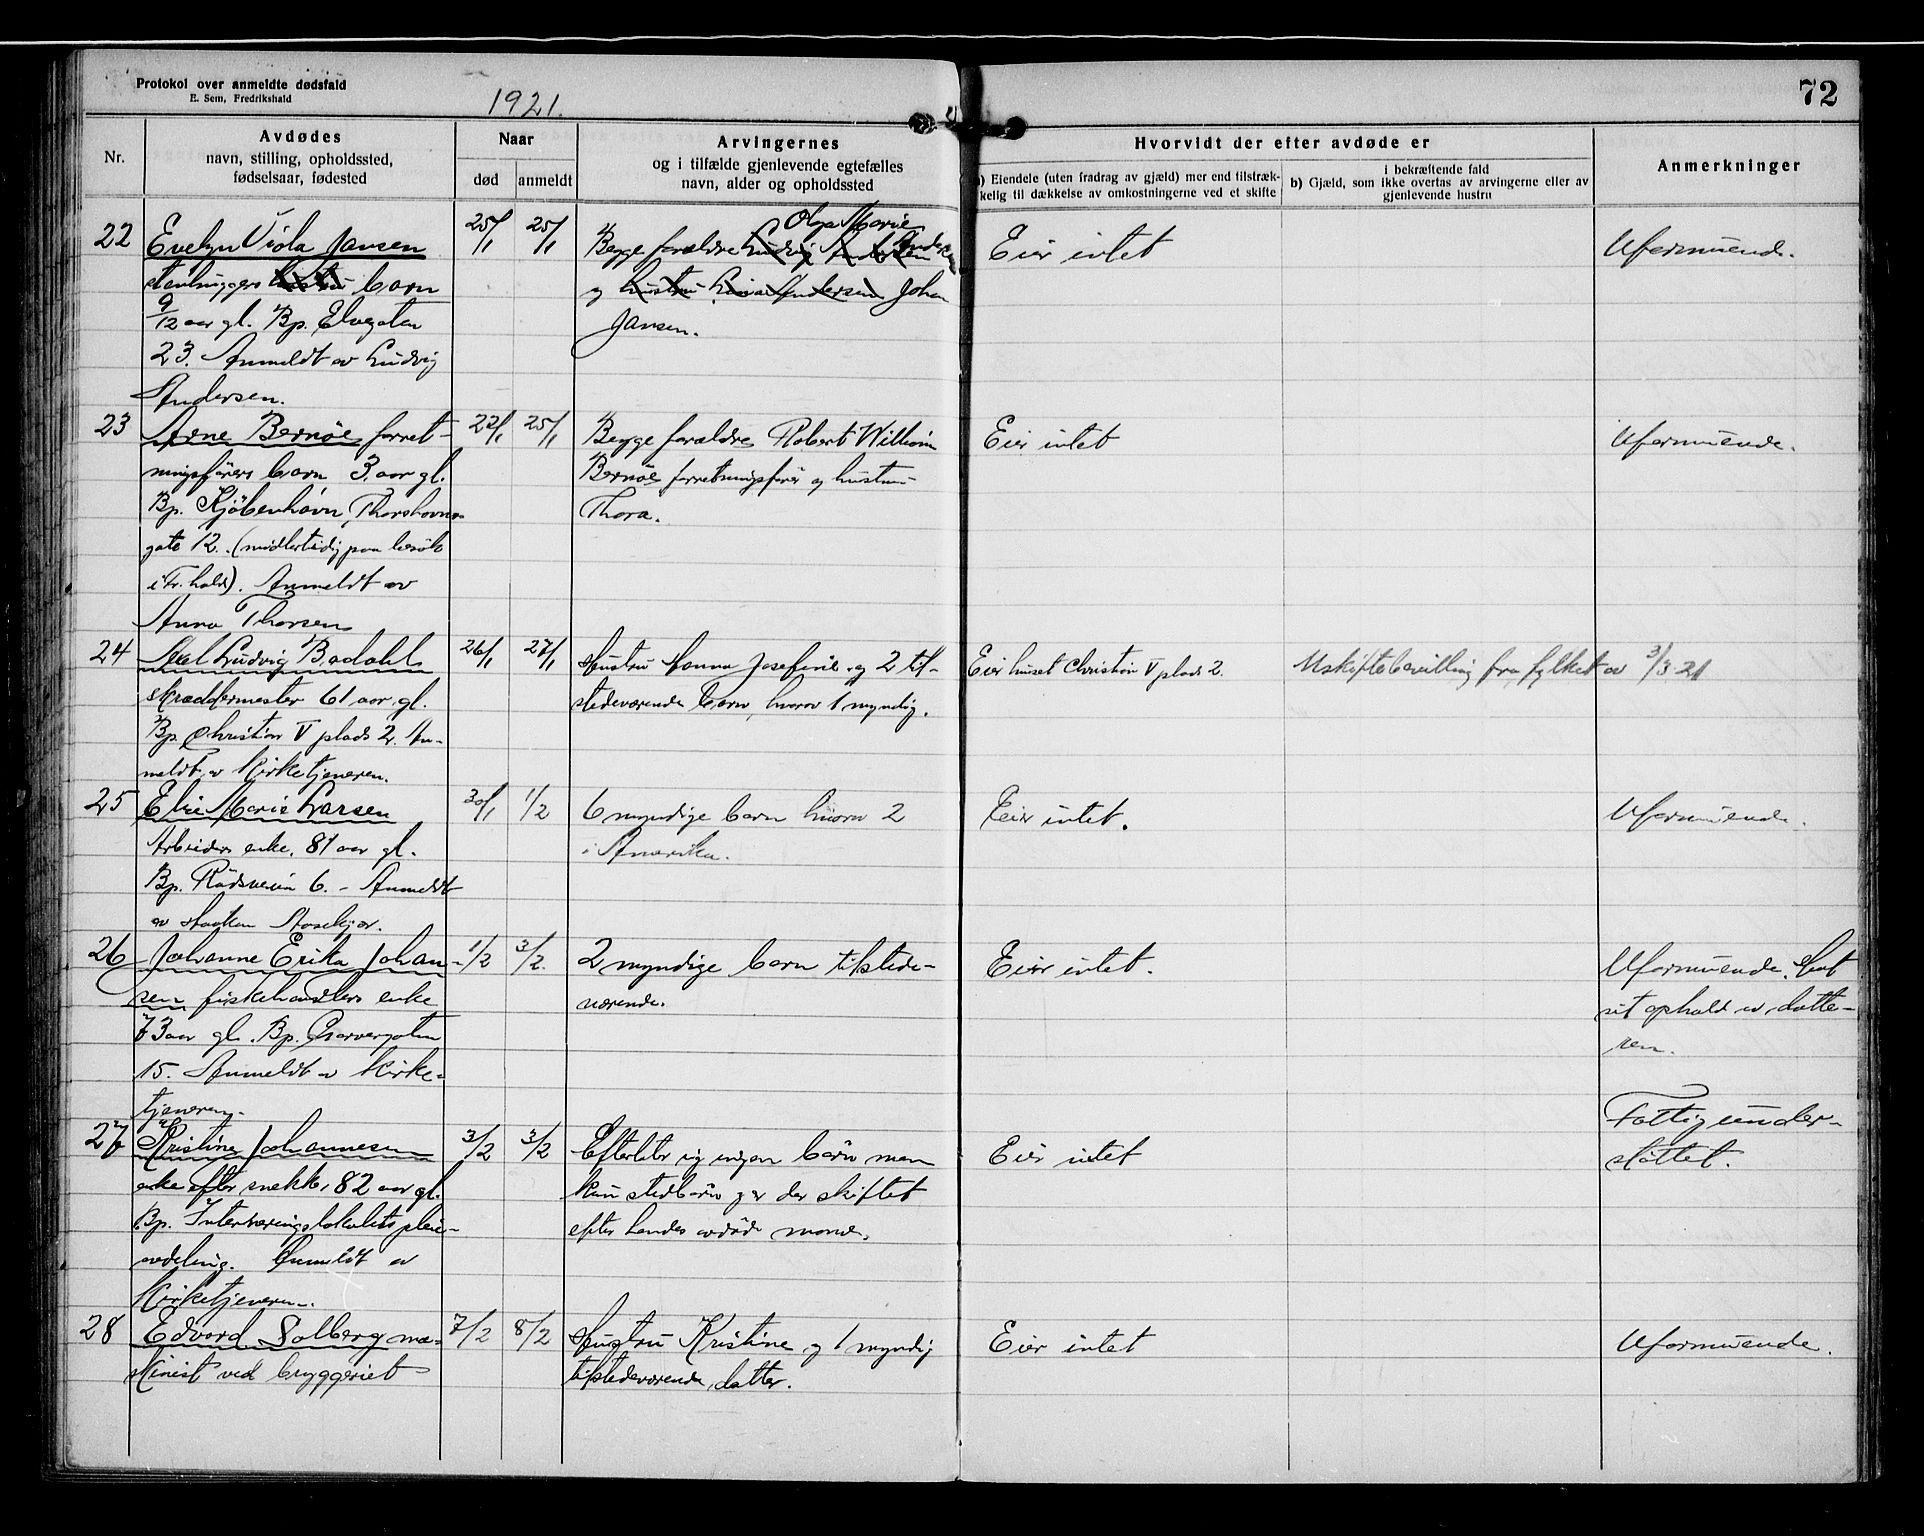 Protokol over anmeldte dødsfald
E. Sem, Fredrikshald
1921.
72
Nr.
Avdødes
navn, stilling, opholdssted,
fødselsaar, fødested
Naar
død
anmeldt
Arvingernes
og i tilfælde gjenlevende egtefælles
navn, alder og opholdssted
Hvorvidt der efter avdøde er
a) Eiendele (uten fradrag av gjæld) mer end tilstræk-
kelig til dækkelse av omkostningerne ved et skifte
I bekræftende fald
b) Gjæld, som ikke overtas av arvingerne eller av
gjenlevende hustru
Anmerkninger
22
Evelyn Viola Jansen
stenhuggers hustru barn
9/12 aar gl. Bp. Elvegaten
23. Anmeldt av Ludvig
Andersen.
25/1
25/1
Olga Marie
Begge forældre Ludvig Andersen
og hustru Andersen Johan
Jansen.
Eier intet
Uformuende.
23
Arne Bernøe forret-
ningsførers barn 3 aar gl.
Bp. Kjöbenhavn, Thorshavns-
gate 12. (midlertidig paa besök
i Fr.hald). Anmeldt av
Anna Thorsen
22/1
25/1
Begge forældre Robert Wilhelm
Bernöe forretningsförer og hustru
Thora.
Eier intet
Uformuende.
24
Axel Ludvig Bodahl
skræddermester 61 aar gl.
Bp. Christian V plads 2. An-
meldt av Kirketjeneren.
26/1
27/1
Hustru Hanna Josefine og 2 til-
stedeværende barn, hvorav 1 myndig.
Eier huset Christian V plads 2.
Uskiftebevilling fra fylket av 3/3 21
25
Elise Marie Larsen
Arbeiders enke, 81 aar gl.
Bp. Rödsveien 6. - Anmeldt
av
30/1
1/2
6 myndige barn hvorav 2
i Amerika.
Eier intet.
Uformuende.
26
Johanne Erika Johan-
sen fiskehandlers enke
73 aar gl. Bp. Garvergaten
15. Anmeldt av Kirke-
tjeneren.
1/2
3/2.
2 myndige barn tilstede-
værende.
Eier intet.
Uformuende. Hat
sit ophold av datte-
ren.
27
Kristine Johannesen
enke efter snekker, 82 aar gl.
Bp. Interneringslokalets pleie-
avdeling. Anmeldt av
Kirketjeneren.
3/2
3/2
Efterlater sig ingen barn men
kun stedbarn og er der skiftet
efter hendes avdöde mand.
Eier intet
Fattigunder-
stöttet.
28
Edvard Solberg ma-
skinist ved bryggeriet
7/2
8/2
Hustru Kristine og 1 myndig
tilstedeværende datter.
Eier intet
Uformuende.